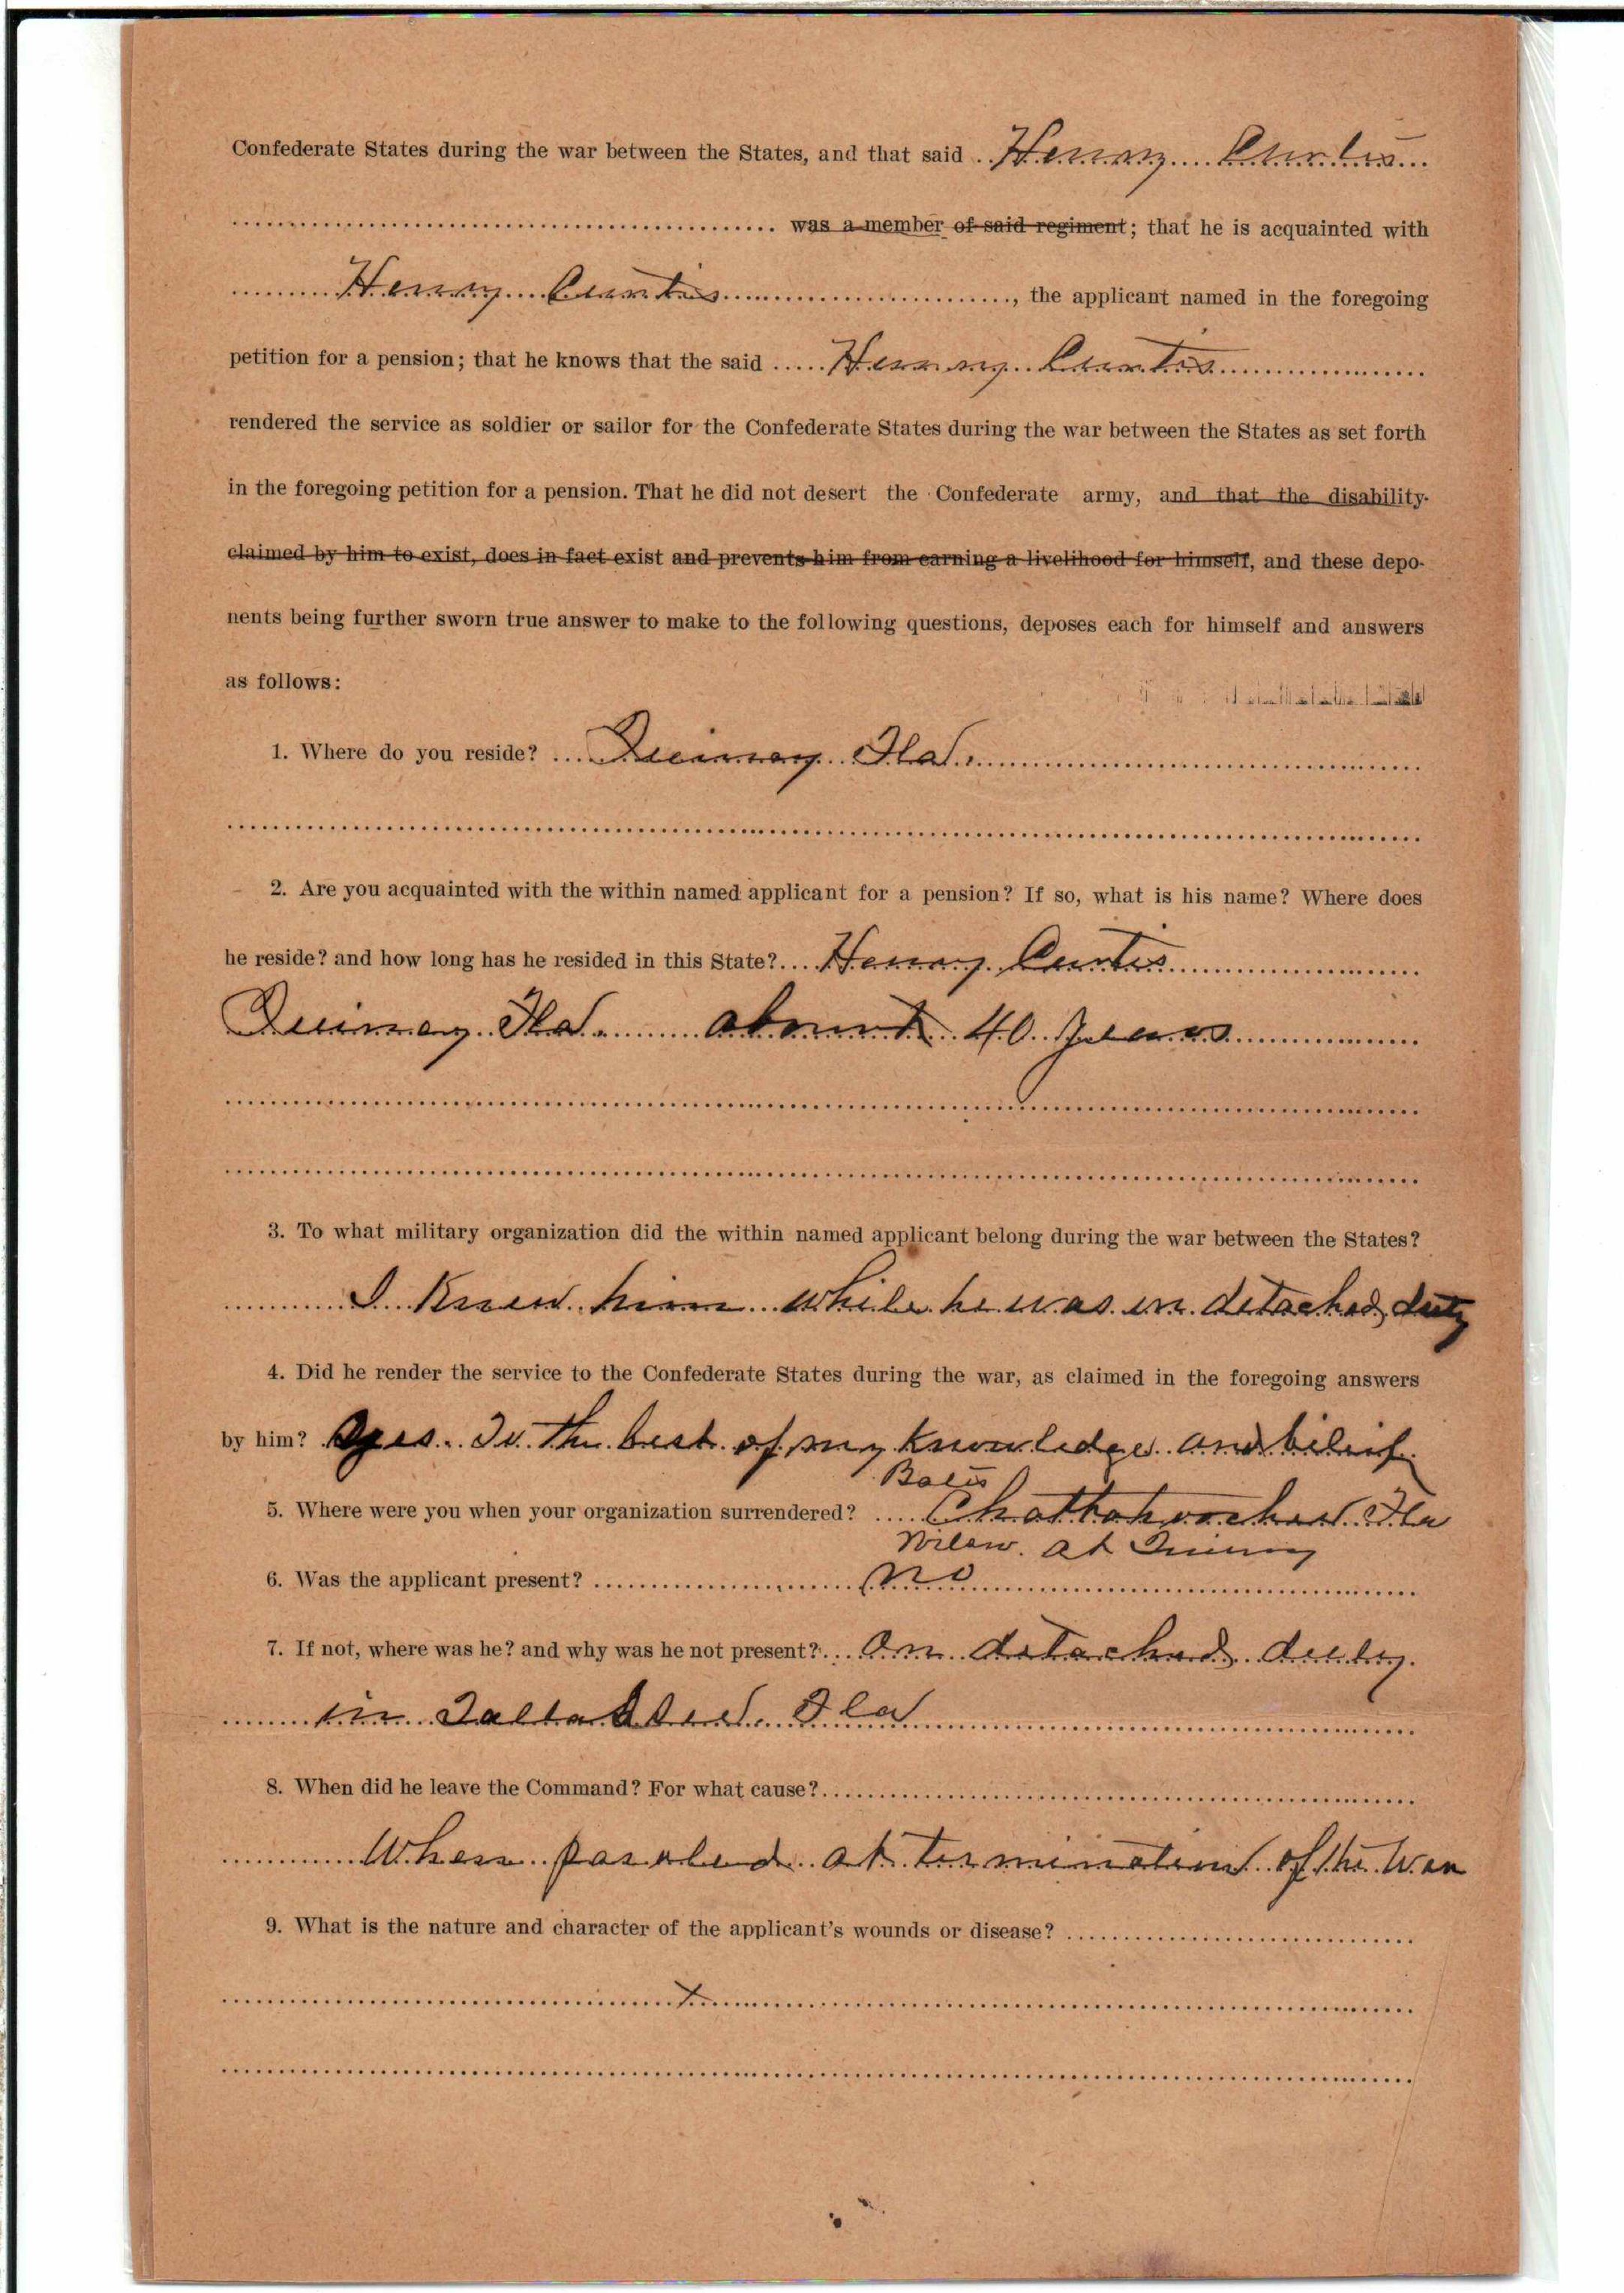 Confederate States during the war between the States, and that said Henry Curtis
was a member of said regiment; that he is acquainted with
Henry Curtis, the applicant named in the foregoing
petition for a pension; that he knows that the said Henry Curtis
rendered the service as soldier or sailor for the Confederate States during the war between the States as set forth
in the foregoing petition for a pension. That he did not desert the Confederate army, and that the disability
claimed by him to exist, does in fact exist and prevents him from earning a livelihood for himself, and these depo-
nents being further sworn true answer to make to the following questions, deposes each for himself and answers
as follows:
1. Where do you reside? Quincy Fla.
2. Are you acquainted with the within named applicant for a pension? If so, what is his name? Where does
he reside? and how long has he resided in this State? Henry Curtis
Quincy Fla. about 40 years
3. To what military organization did the within named applicant belong during the war between the States?
I Knew him while he was on detached duty
4. Did he render the service to the Confederate States during the war, as claimed in the foregoing answers
by him? yes. To the best of my knowledge and belief
5. Where were you when your organization surrendered? Chattahoochee Fla
at Quincy
6. Was the applicant present? no
7. If not, where was he? and why was he not present? On detached duty
in Tallassee Fla
8. When did he leave the Command? For what cause?
When paroled at termination of the War
9. What is the nature and character of the applicant's wounds or disease?
x